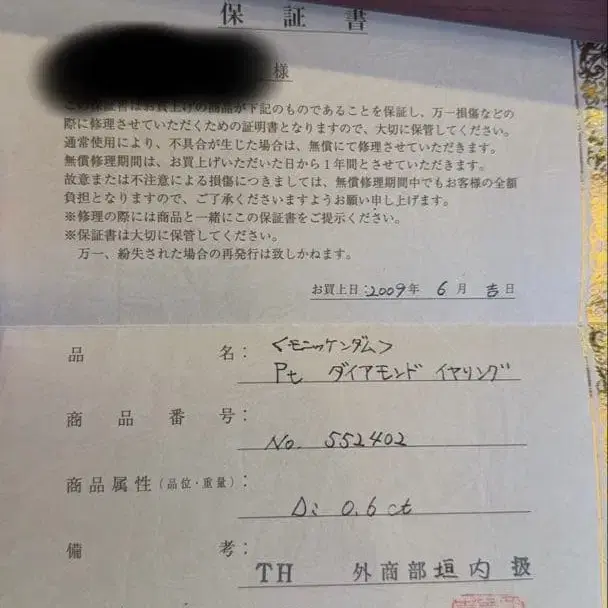 保証書
様
この保証書はお買上げの商品が下記のものであることを保証し、万一損傷などの
際に修理させていただくための証明書となりますので、大切に保管してください。
通常使用により、不具合が生じた場合は、無償にて修理させていただきます。
無償修理期間は、お買上げいただいた日から1年間とさせていただきます。
故意または不注意による損傷につきましては、無償修理期間中でもお客様の全額
負担となりますので、ご了承くださいますようお願い申し上げます。
※修理の際には商品と一緒にこの保証書をご提示ください。
※保証書は大切に保管してください。
万一、紛失された場合の再発行は致しかねます。
お買上日:2009年 6月 吉日
<モニッケンダム>
品名: Pt ダイアモンド イヤリング
商品番号: No. 552402
商品属性(品位・重量): D: 0.6ct
備考: TH 外商部垣内扱